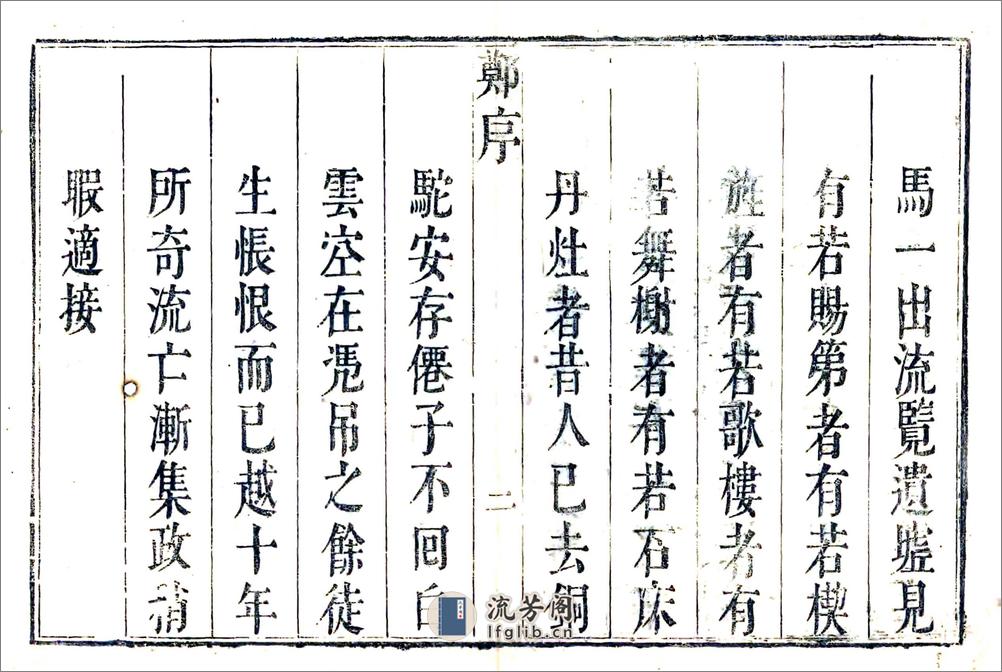 馬一出流覽遺墟見
有若賜第者有若楔
旌者有若歌樓者有
若舞榭者有若石床
丹灶者昔人已去銅
鄭序
二
駝安存僊子不回白
雲空在凴吊之餘徒
生悵恨而已越十年
所奇流亡漸集政稍
暇適接
流芳阁
lfglib.cn